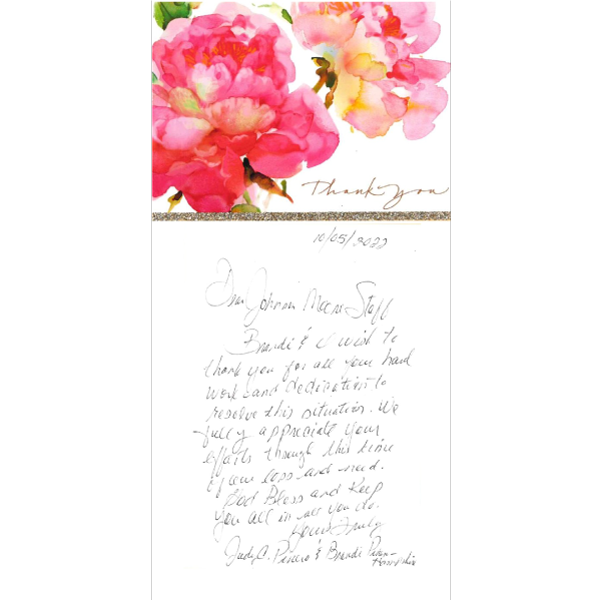 Thank you
10/05/2022
Dear Johnson Staff
Brandi & I wish to
thank you for all your hard
work and dedication to
resolve this situation. We
fully appreciate your
efforts through this time
of our loss and need.
God Bless and Keep
you all in all you do.
Yours Truly
Judy A. & Brandi